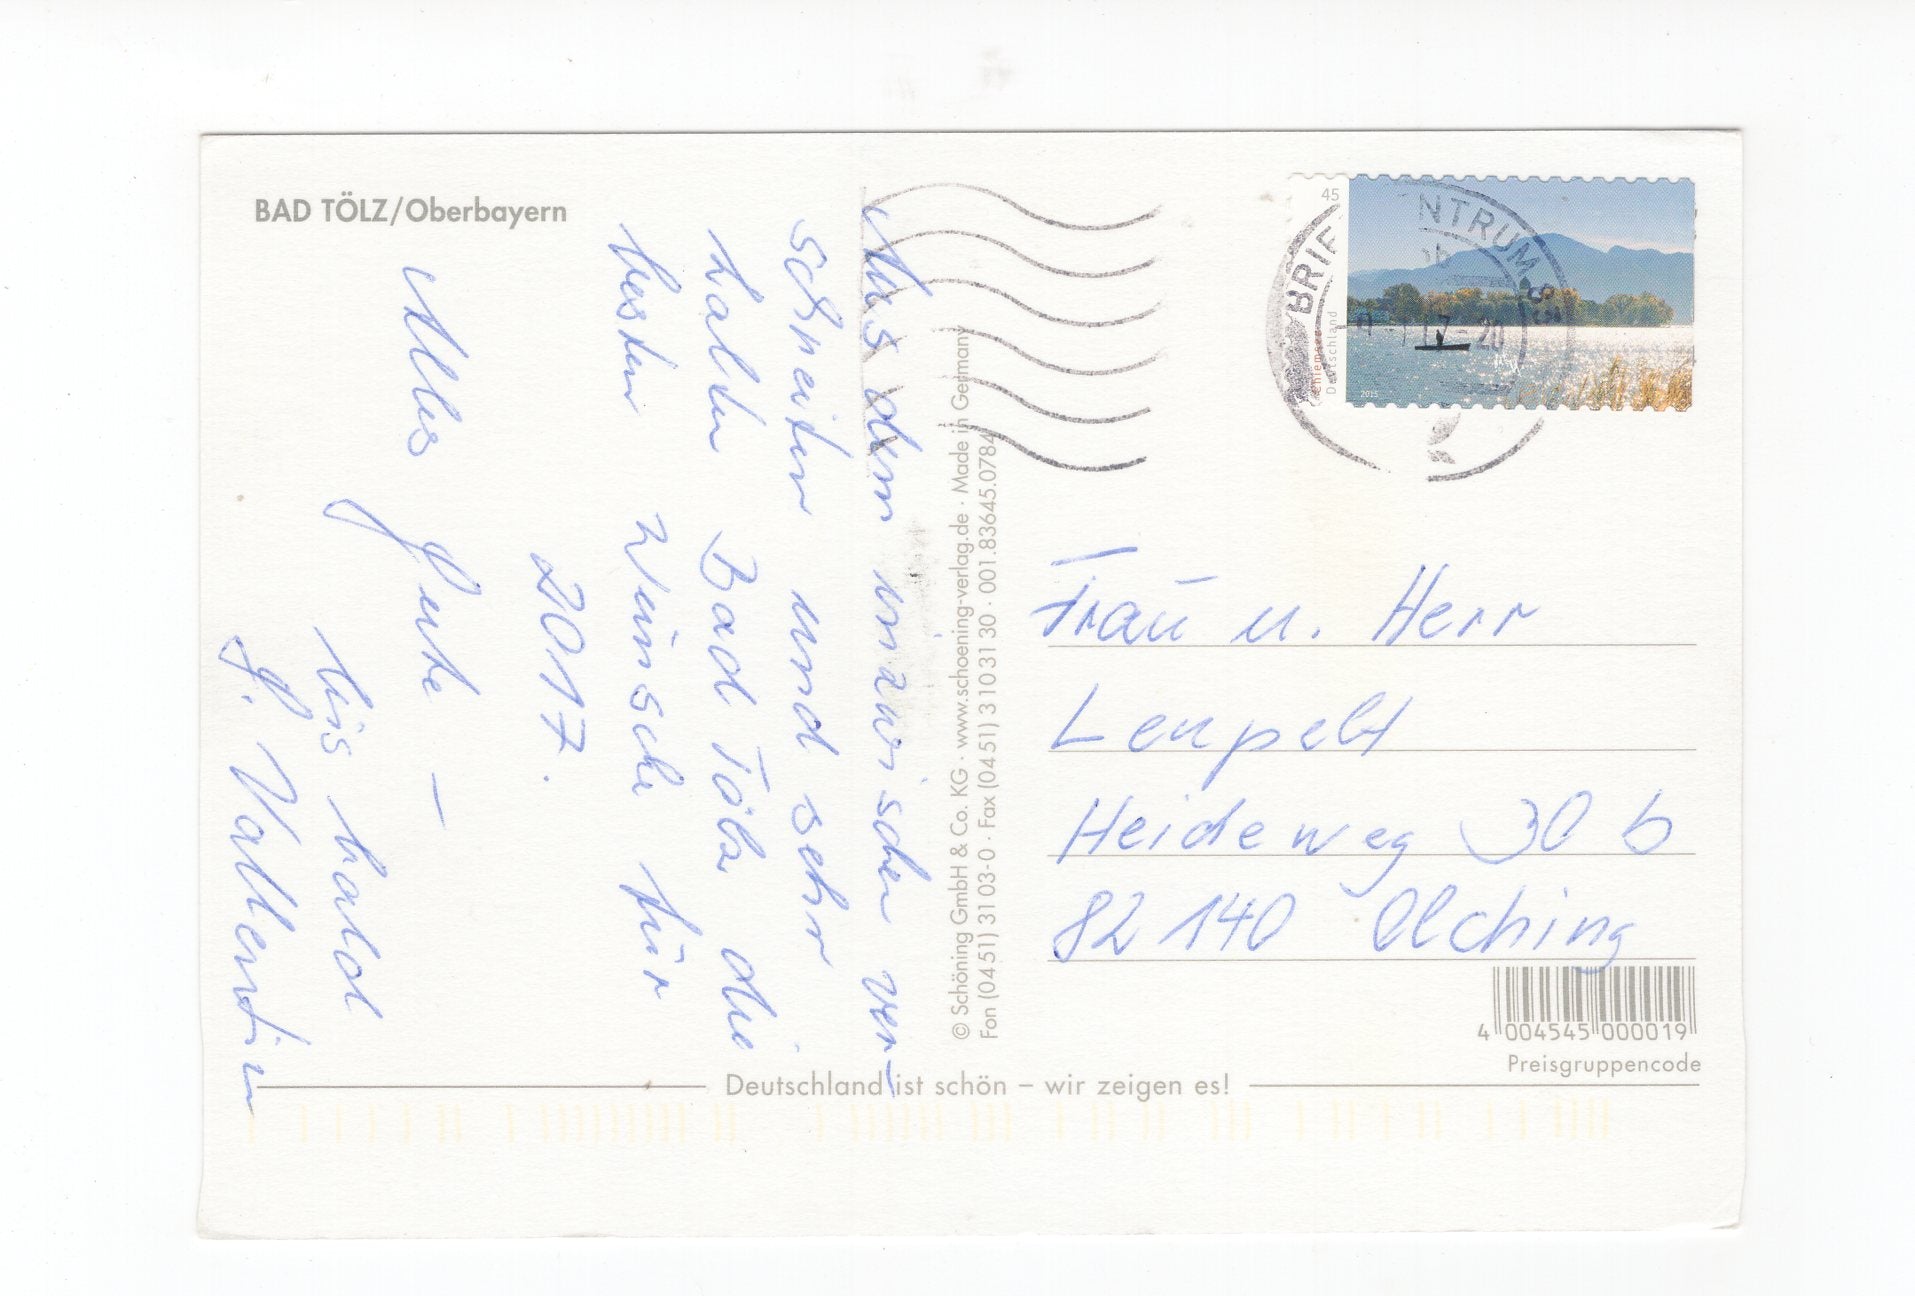 BAD TÖLZ/Oberbayern
Aus dem inzwischen ver-
schneiten und sehr
kalten Bad Tölz die
besten Wünsche für
2017.
Alles Gute –
bis bald
G. Vallentin
© Schöning GmbH & Co. KG · www.schoening-verlag.de · Made in Germany
Fon (04 51) 31 03-0 · Fax (04 51) 3 10 31 30 · 001.83645.0784
45
Chiemsee
Deutschland
2015
Frau u. Herr
Leupelt
Heideweg 30 b
82140 Olching
4 004545 000019
Preisgruppencode
Deutschland ist schön – wir zeigen es!